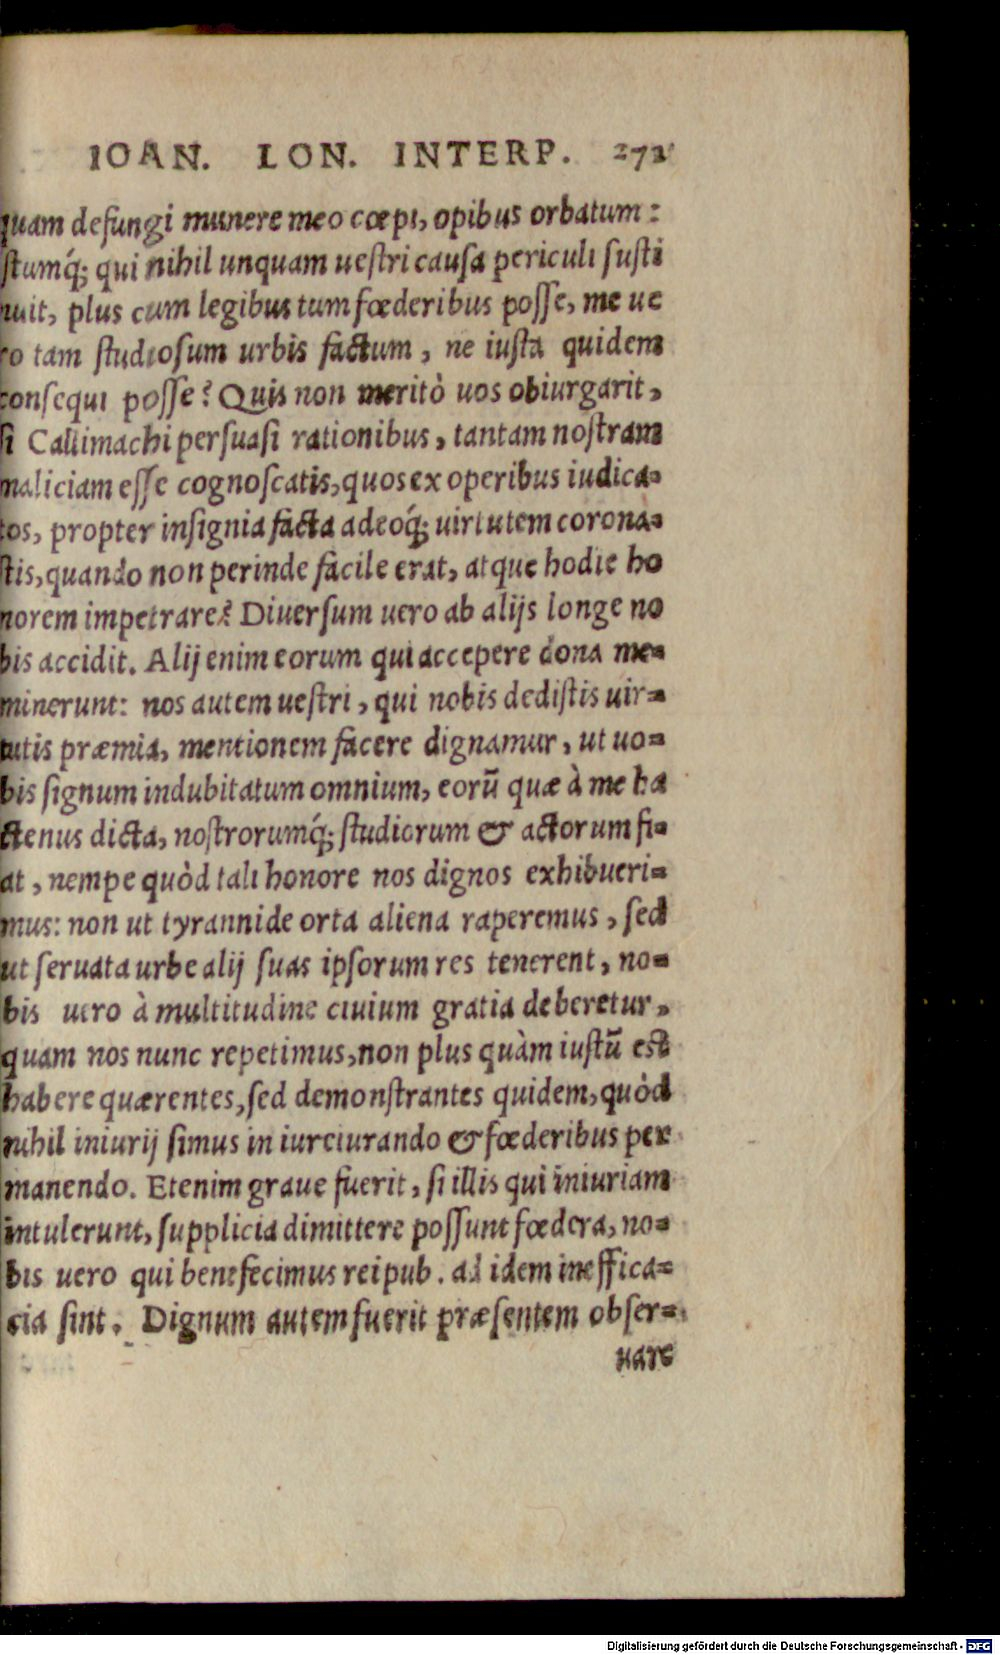 IOAN. LON. INTERP. 272
quam defungi munere meo cœpi, opibus orbatum:
istumq́; qui nihil unquam uestri causa periculi susti
nuit, plus cum legibus tum fœderibus posse, me ue
ro tam studiosum urbis factum, ne iusta quidem
consequi posse? Quis non meritò uos obiurgarit,
si Callimachi persuasi rationibus, tantam nostram
maliciam esse cognoscatis, quos ex operibus iudica-
tos, propter insignia facta adeoq́; uirtutem corona-
stis, quando non perinde facile erat, atque hodie ho
norem impetrare? Diuersum uero ab alijs longe no
bis accidit. Alij enim eorum qui accepere dona me-
minerunt: nos autem uestri, qui nobis dedistis uir-
tutis præmia, mentionem facere dignamur, ut uo-
bis signum indubitatum omnium, eorũ quæ à me ha
ctenus dicta, nostrorumq́; studiorum & actorum fi-
at, nempe quòd tali honore nos dignos exhibueri-
mus: non ut tyrannide orta aliena raperemus, sed
ut seruata urbe alij suas ipsorum res tenerent, no-
bis uero à multitudine ciuium gratia deberetur,
quam nos nunc repetimus, non plus quàm iustũ est
habere quærentes, sed demonstrantes quidem, quòd
nihil iniurij simus in iureiurando & fœderibus per
manendo. Etenim graue fuerit, si illis qui iniuriam
intulerunt, supplicia dimittere possunt fœdera, no-
bis uero qui benefecimus reipub. ad idem ineffica-
cia sint. Dignum autem fuerit præsentem obser-
uare
Digitalisierung gefördert durch die Deutsche Forschungsgemeinschaft - DFG